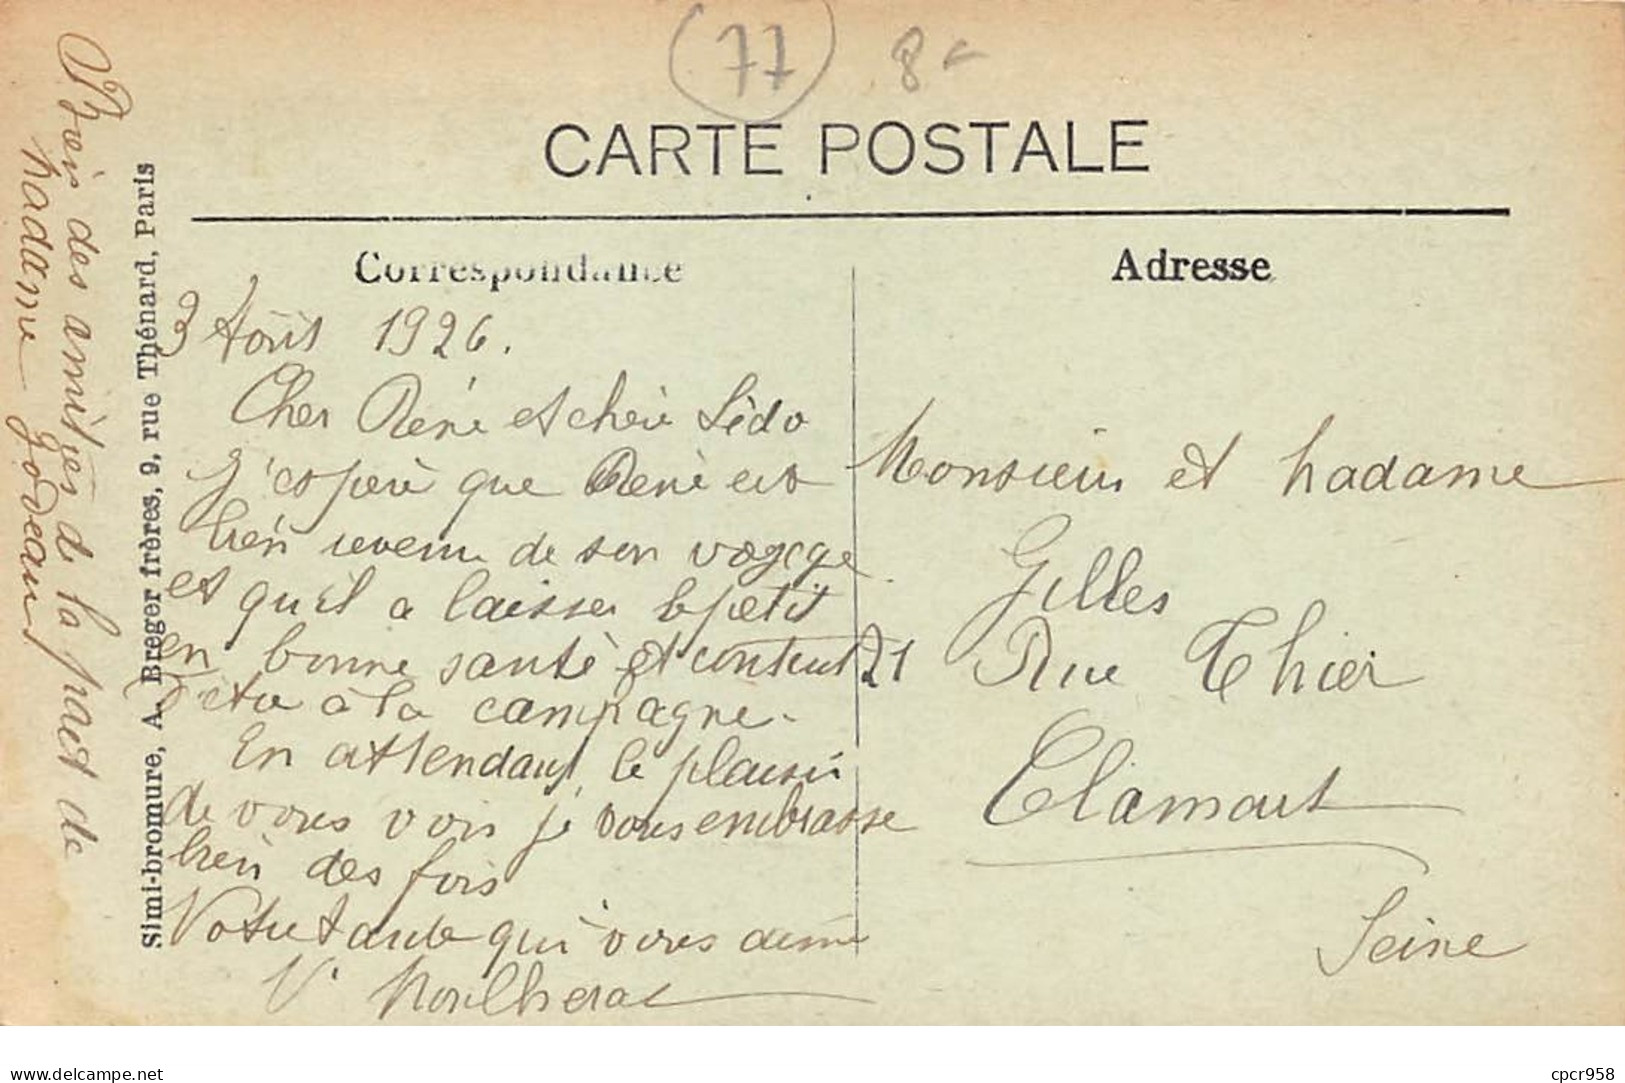 77
8
CARTE POSTALE
Correspondance
Adresse
3 Août 1926.
Cher René et chère Lédo
J'espère que René est
bien revenu de son voyage
et quil a laisser le petit
en bonne santé et content
d'etre à la campagne.
En attendant le plaisir
de vous voir je vous embrasse
bien des fois
Votre tante qui vous aime
Vve
Monsieur et Madame
Gilles
21 Rue Thier
Clamart
Seine
Simi-bromure, A. Breger frères, 9, rue Thénard, Paris
des amitiés de la part de
Madame Godeau
www.delcampe.net
cpcr958